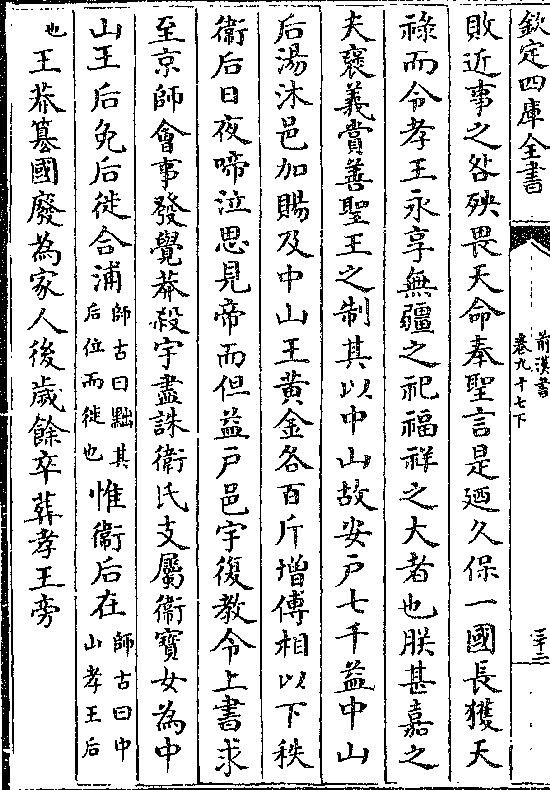 欽定四庫全書
前漢書
卷九十七下
三十二
敗近事之咎殃畏天命奉聖言是廼久保一國長獲天
祿而令孝王永享無疆之祀福祥之大者也朕甚嘉之
夫褒義賞善聖王之制其以中山故安戶七千益中山
后湯沐邑加賜及中山王黃金各百斤增傅相以下秩
衞后日夜啼泣思見帝而但益戶邑宇復教令上書求
至京師會事發覺莽殺宇盡誅衞氏支屬衞寶女為中
山王后免后徙合浦師古曰黜其后位而徙也惟衞后在師古曰中山孝王后
也王莽篡國廢為家人後歲餘卒葬孝王旁